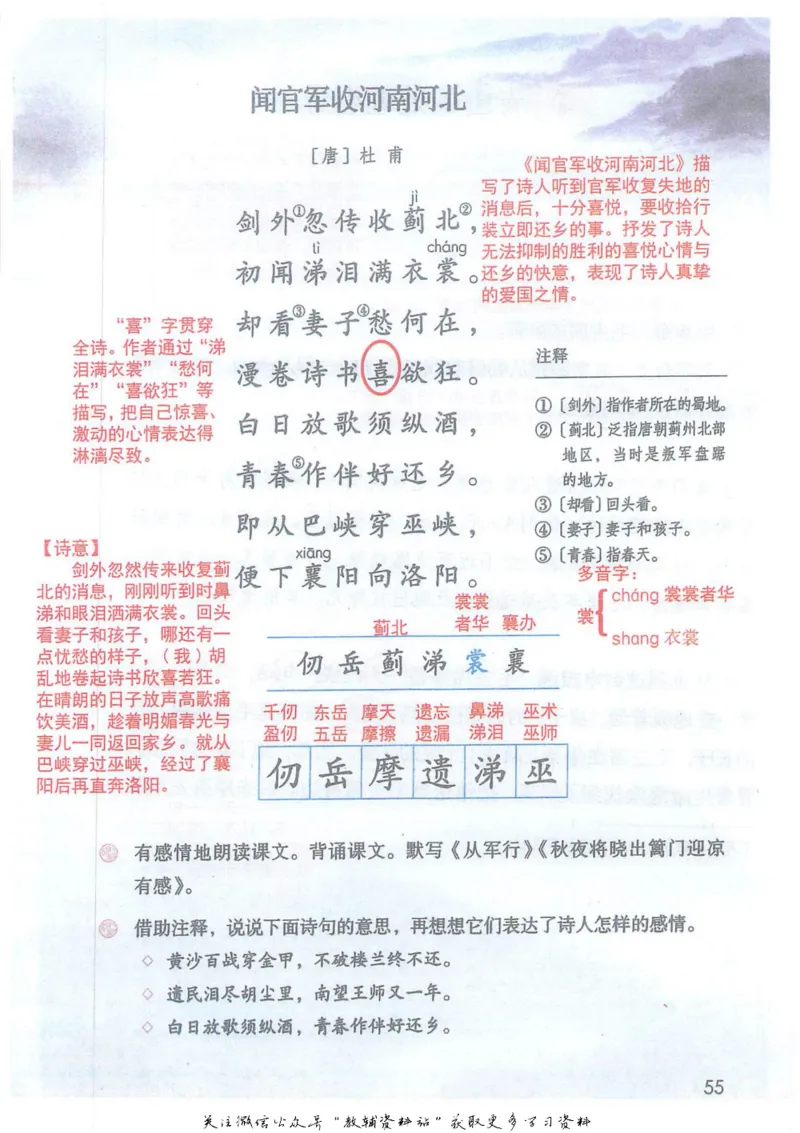 闻官军收河南河北
[唐] 杜 甫
《闻官军收河南河北》描
写了诗人听到官军收复失地的
消息后，十分喜悦，要收拾行
装立即还乡的事。抒发了诗人
无法抑制的胜利的喜悦心情与
还乡的快意，表现了诗人真挚
的爱国之情。
jì
剑外①忽传收蓟北②，
tì cháng
初闻涕泪满衣裳。
却看③妻子④愁何在，
漫卷诗书喜欲狂。
白日放歌须纵酒，
青春⑤作伴好还乡。
即从巴峡穿巫峡，
xiāng
便下襄阳向洛阳。
“喜”字贯穿
全诗。作者通过“涕
泪满衣裳”“愁何
在”“喜欲狂”等
描写，把自己惊喜、
激动的心情表达得
淋漓尽致。
注释
①〔剑外〕指作者所在的蜀地。
②〔蓟北〕泛指唐朝蓟州北部
地区，当时是叛军盘踞
的地方。
③〔却看〕回头看。
④〔妻子〕妻子和孩子。
⑤〔青春〕指春天。
多音字：
裳 { cháng 裳裳者华
shang 衣裳
【诗意】
剑外忽然传来收复蓟
北的消息，刚刚听到时鼻
涕和眼泪洒满衣裳。回头
看妻子和孩子，哪还有一
点忧愁的样子，（我）胡
乱地卷起诗书欣喜若狂。
在晴朗的日子放声高歌痛
饮美酒，趁着明媚春光与
妻儿一同返回家乡。就从
巴峡穿过巫峡，经过了襄
阳后再直奔洛阳。
裳裳
蓟北 者华 襄办
仞 岳 蓟 涕 裳 襄
千仞 岳岳 摩天 遗忘 鼻涕 巫术
盈仞 五岳 摩擦 遗漏 涕泪 巫师
仞 岳 摩 遗 涕 巫
有感情地朗读课文。背诵课文。默写《从军行》《秋夜将晓出篱门迎凉
有感》。
借助注释，说说下面诗句的意思，再想想它们表达了诗人怎样的感情。
◇ 黄沙百战穿金甲，不破楼兰终不还。
◇ 遗民泪尽胡尘里，南望王师又一年。
◇ 白日放歌须纵酒，青春作伴好还乡。
55
关注微信公众号“教辅资料站”获取更多学习资料